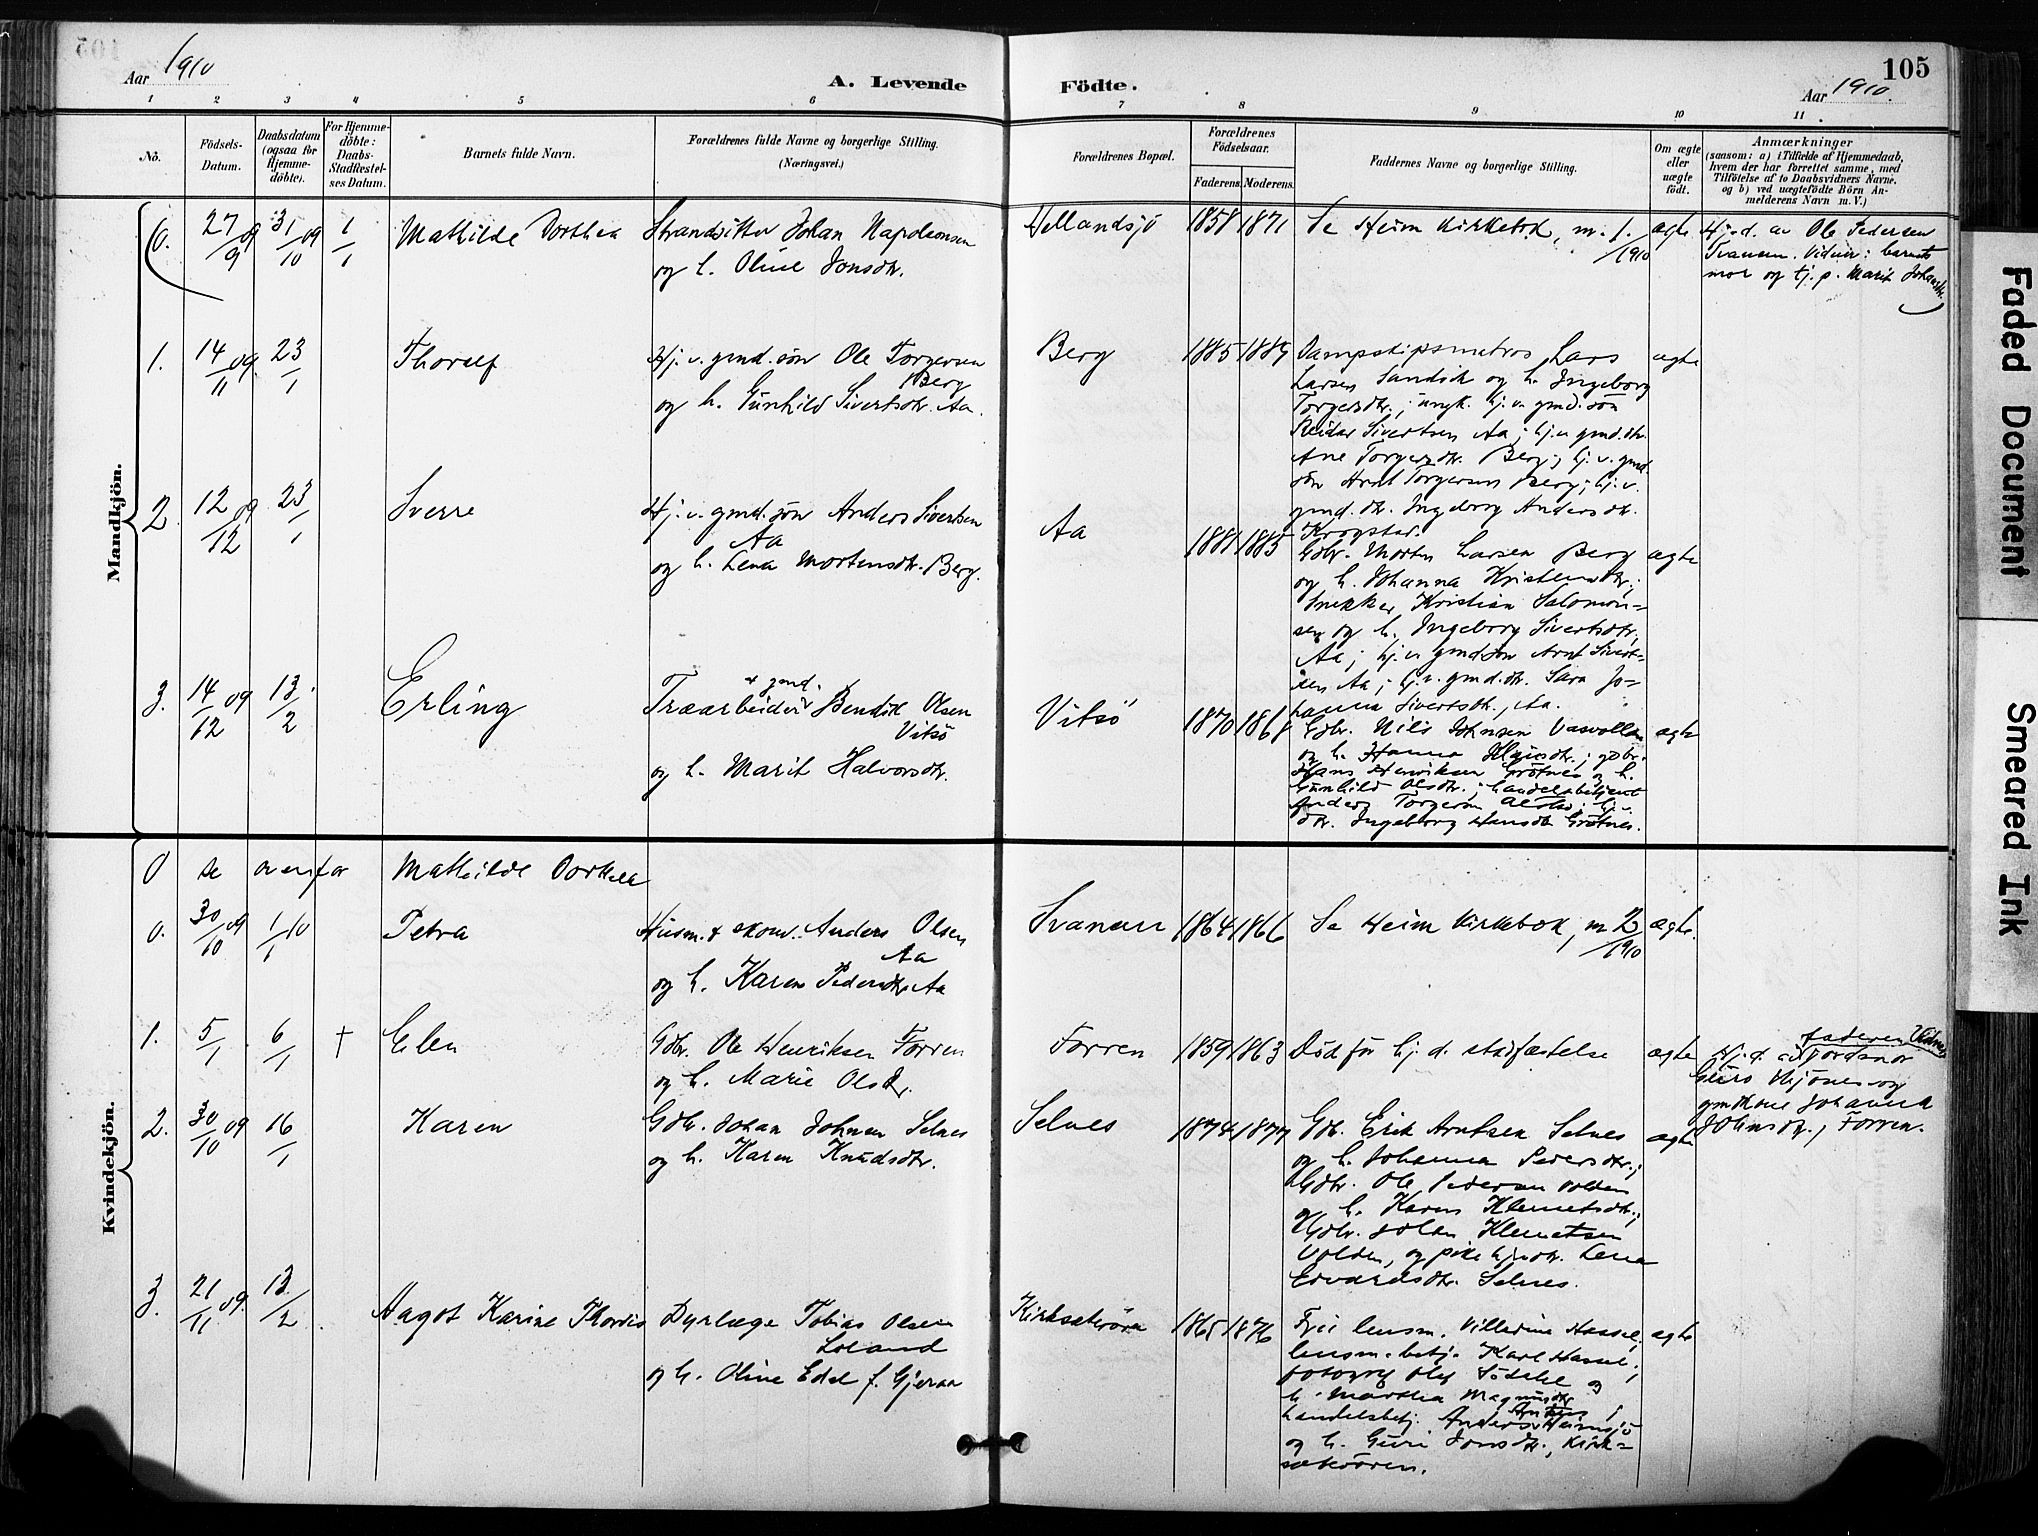 105
Aar 1910
A. Levende
Födte.
Aar 1910.
1 2 3 4 5 6 7 8 9 10 11
No.
Födsels-
Datum.
Daabsdatum
(ogsaa for
Hjemme-
döbte).
For Hjemme-
döbte:
Daabs-
Stadfæstel-
ses Datum.
Barnets fulde Navn.
Forældrenes fulde Navne og borgerlige Stilling.
(Næringsvei.)
Forældrenes Bopæl.
Forældrenes
Födselsaar.
Faderens. Moderens.
Faddernes Navne og borgerlige Stilling.
Om ægte
eller
uægte
födt.
Anmærkninger
(saasom: a) i Tilfælde af Hjemmedaab,
hvem der har forrettet samme, med
Tilföielse af to Daabsvidners Navne,
og b) ved uægtefödte Börn An-
melderens Navn m. V.)
Mandkjön.
0. 27/9 09 31/10 09 1/1 Mathilde Dorthea
Strandsitter Johan Napoleonsen
og h. Oline Jonsdtr.
Hellandsjö 1858 1871
Se Heim Kirkebok, m. 1.
/1910
ægte
Hj.d. av Ole Pedersen
Svanem. Vidner: barnets
mor og tj. p. Marit Johansdtr.
1. 14/11 09. 23/1 Thoralf
Hj. v. gmd. sön Ole Torgersen
Berg
og h. Gunhild Sivertsdtr. Aa.
Berg 1885 1889
Dampskipsmatros Lars
Larsen Sandvik og h. Ingeborg
Torgersdtr.; ungk. hj. v. gmd. sön
Reidar Sivertsen Aa; hj. v. gmd. dtr.
Ane Torgersdtr. Berg; hj. v. gmd.
sön Arnt Torgersen Berg; hj. v.
gmd. dtr. Ingeborg Andersdtr.
Krogstad.
ægte
2. 12/12 09 23/1 Sverre
Hj. v. gmd. sön Anders Sivertsen
Aa
og h. Lena Mortensdtr. Berg.
Aa 1881 1885
Gdbr. Morten Larsen Berg
og h. Johanna Kristensdtr.;
Snekker Kristian Salomon-
sen og h. Ingeborg Sivertsdtr.,
Aa; hj. v. gmd. sön Arnt Sivert-
sen Aa; hj. v. gmd. dtr. Sara Jo-
hanna Sivertsdtr., Aa.
ægte
3. 14/12 09 13/2 Erling
Træarbeider v gmd. Bendik Olsen
Vitsö
og h. Marit Halvorsdtr.
Vitsö 1870 1868
Gdbr. Nils Johnsen Vasvollen
og h. Hanna; gdbr.
Hans Henriksen Grötnes og h.
Gunhild Olsdtr.; handelsbetjent
Anders Torgersen; hj. v.
dtr. Ingeborg Hansdtr. Grötnes.
ægte
Kvindekjön.
0 se ovenfor Mathilde Dorthea
0. 30/10 09 1/1 10 Petra
Husm. & skom. Anders Olsen
Aa
og h. Karen Pedersdtr. Aa
Svanem 1864 1866
Se Heim Kirkebok, m 2
/1910
ægte.
1. 5/1 6/1 † Elen
Gdbr. Ole Henriksen Forren
og h. Marie Olsdtr.
Forren 1859 1863
Död för hj. d. stadfæstelse
ægte
faderen Vidner
Hj.d. av Jordmor
Guro Hjönes og
gmdkone Johanna
Johnsdtr., Forren.
2. 30/10 09 16/1 Karen
Gdbr. Johan Johnsen Selnes
og h. Karen Knudsdtr.
Selnes 1874 1877
Gdb. Erik Arntsen Selnes
og h. Johanna Pedersdtr.;
Gdbr. Ole Pedersen Volden
og h. Karen Klemetsdtr.;
Gdbr. Johan Klemetsen
Volden, og pike hj. dtr. Lena
Edvardsdtr. Selnes.
ægte
3. 21/11 09. 13/2 Aagot Karine Thordis
Dyrlæge Tobias Olsen
Loland
og h. Oline Edel f. Gjeraa
Kirksæterören 1865 1876
Fru lensm. Villerine Hassel,
lensm. betj. Karl Hassel,
fotograf Olaf Södahl og
h. Martha Magnusdtr.
handelsbetj. Anders Heimsjö
og h. Guri Jonsdtr., Kirk-
sæterören.
ægte
Faded Document
Smeared Ink